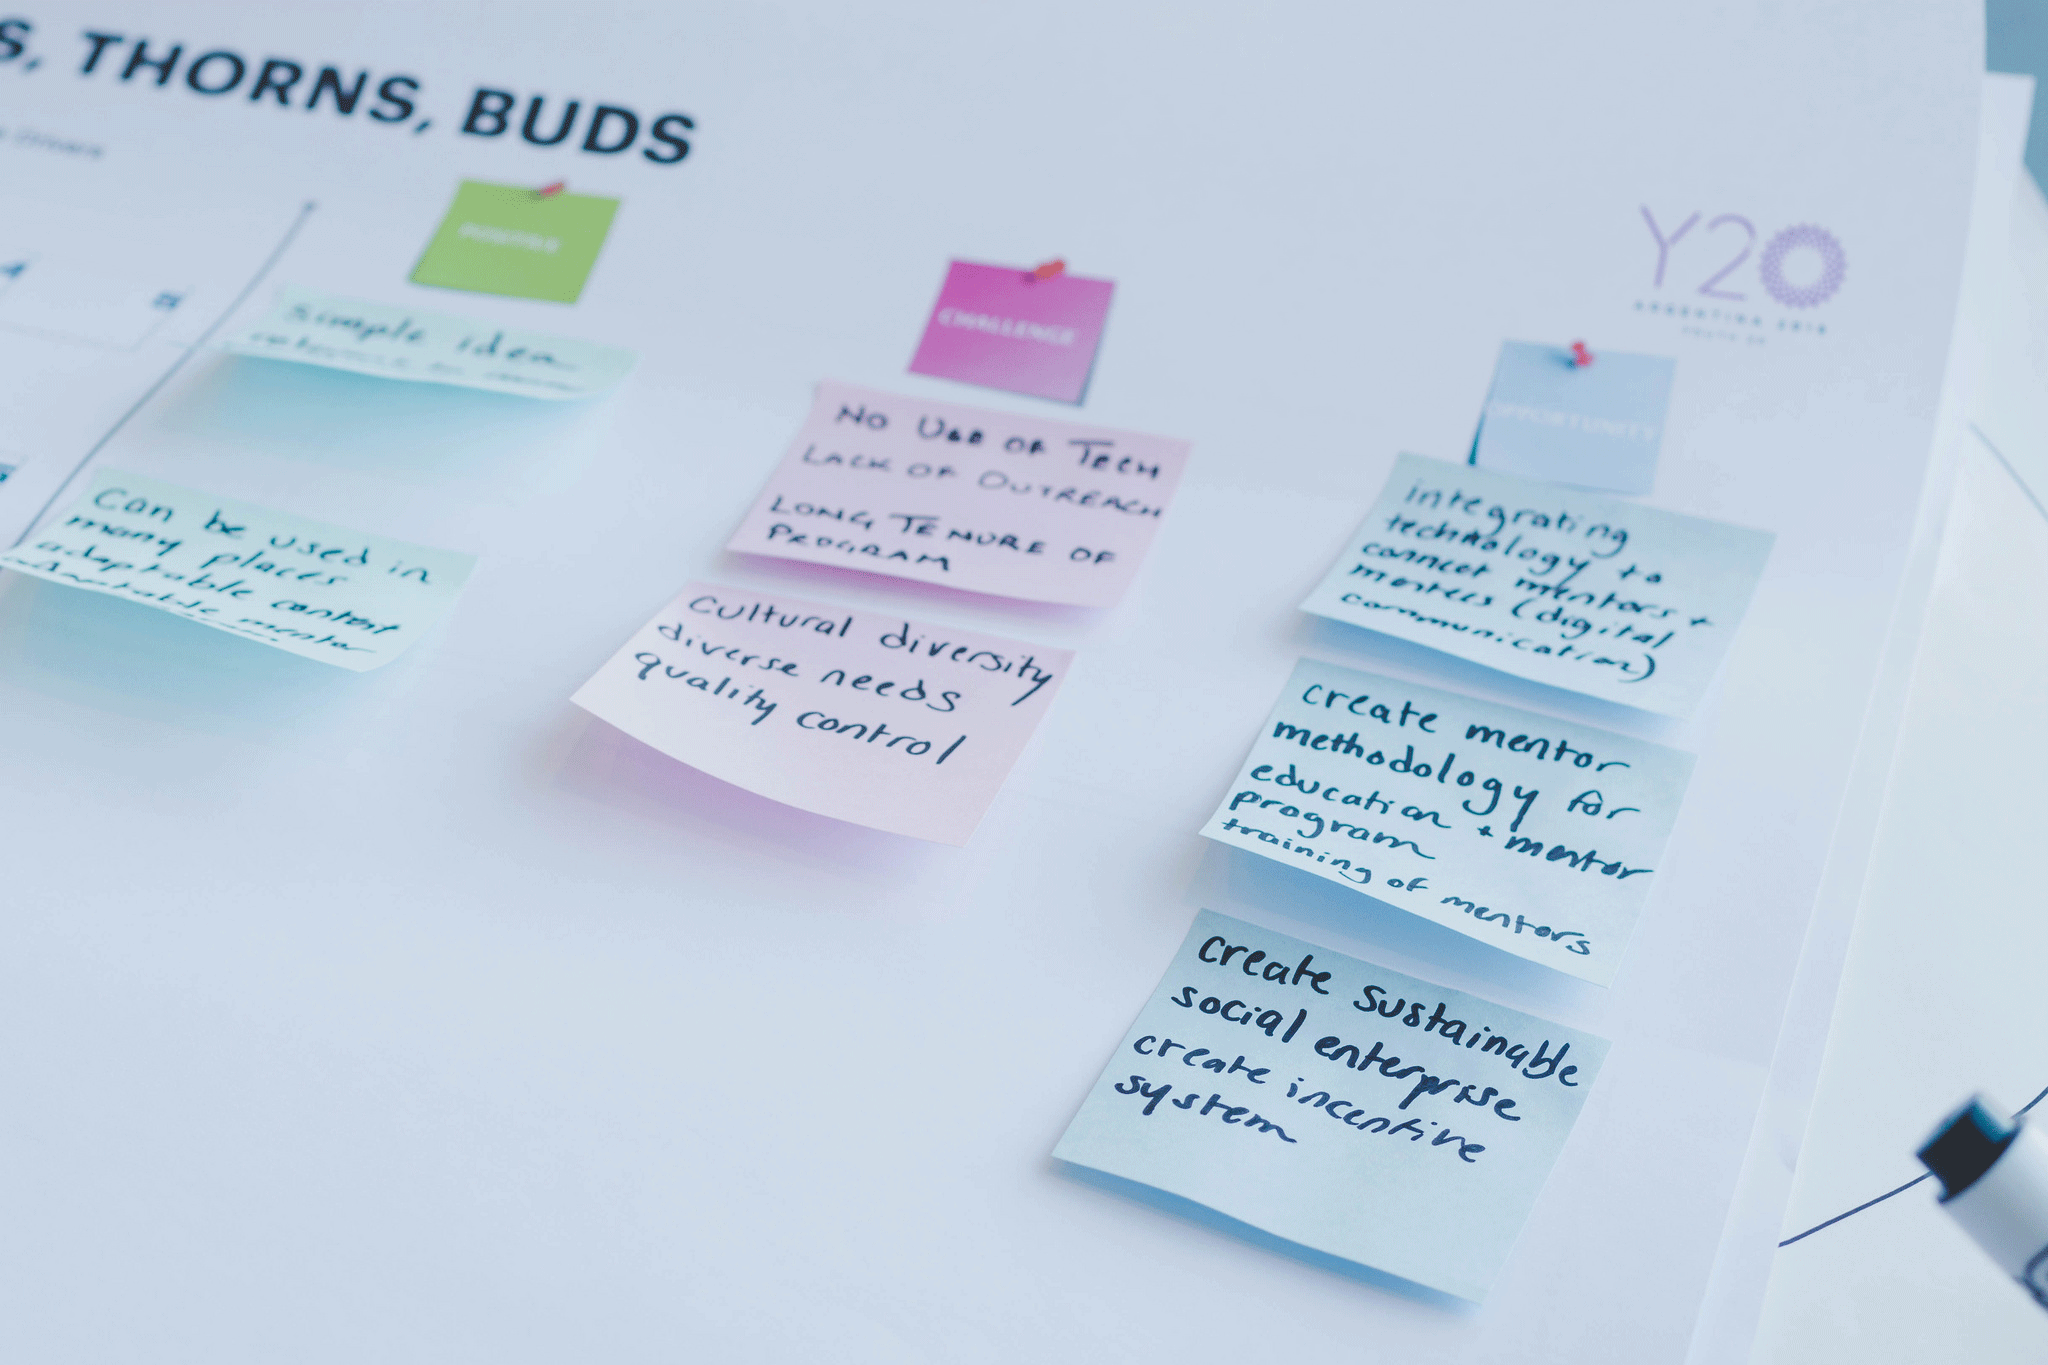 S, THORNS, BUDS
POSITIVE
simple idea
Can be used in
many places
adaptable content
adaptable mentor
CHALLENGE
NO USE OF TECH
LACK OF OUTREACH
LONG TENURE OF
PROGRAM
cultural diversity
diverse needs
quality control
Y20
ARGENTINA 2018
OPPORTUNITY
integrating
technology to
connect mentors +
mentees (digital
communication)
create mentor
methodology for
education + mentor
program
training of mentors
create sustainable
social enterprise
create incentive
system